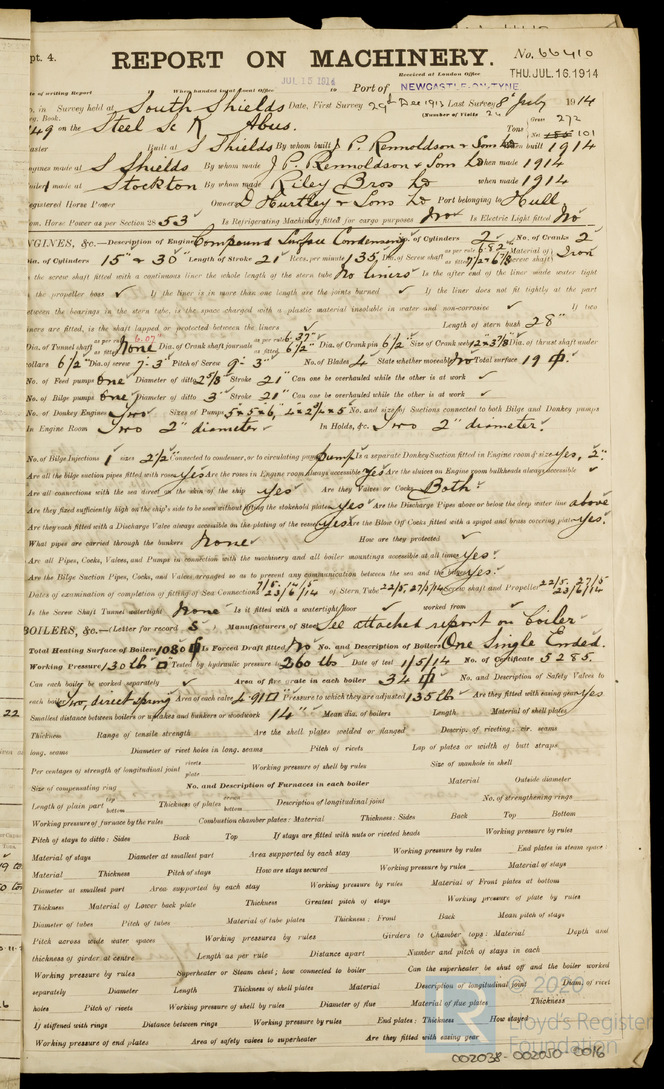 pt. 4.
REPORT ON MACHINERY.
No. 66410
JUL 15 1914
Received at London Office
THU. JUL. 16. 1914
Date of writing Report When handed in at Local Office to Port of NEWCASTLE-ON-TYNE
No. in Survey held at South Shields Date, First Survey 29th Dec 1913 Last Survey 8 July 1914
Reg. Book. (Number of Visits
149 on the Steel Sc K Abus. Tons Gross 272 Net 101
Master Built at S Shields By whom built J. P. Rennoldson & Sons Ld When built 1914
Engines made at S Shields By whom made J. P. Rennoldson & Sons Ld when made 1914
Boilers made at Stockton By whom made Riley Bros Ld when made 1914
Registered Horse Power Owners D Hurtley & Sons Ld Port belonging to Hull
Nom. Horse Power as per Section 28 53 Is Refrigerating Machinery fitted for cargo purposes No Is Electric Light fitted No
ENGINES, &c.—Description of Engines Compound Surface Condensing No. of Cylinders 2 No. of Cranks 2
Dia. of Cylinders 15" & 30" Length of Stroke 21" Revs. per minute 135 Dia. of Screw shaft as per rule 6.82 as fitted 7 1/2 & 6 7/8 Material of screw shaft Iron
Is the screw shaft fitted with a continuous liner the whole length of the stern tube No liners Is the after end of the liner made water tight
in the propeller boss ✓ If the liner is in more than one length are the joints burned ✓ If the liner does not fit tightly at the part
between the bearings in the stern tube, is the space charged with a plastic material insoluble in water and non-corrosive ✓ If two
liners are fitted, is the shaft lapped or protected between the liners ✓ Length of stern bush 28"
Dia. of Tunnel shaft as per rule 6.07" as fitted None Dia. of Crank shaft journals as per rule 6.37" as fitted 6 1/2" Dia. of Crank pin 6 1/2" Size of Crank webs 12 x 3 7/8 Dia. of thrust shaft under
collars 6 1/2" Dia. of screw 7-3" Pitch of Screw 9-3" No. of Blades 4 State whether moveable No Total surface 19 ft
No. of Feed pumps One Diameter of ditto 2 5/8 Stroke 21" Can one be overhauled while the other is at work ✓
No. of Bilge pumps One Diameter of ditto 3" Stroke 21" Can one be overhauled while the other is at work ✓
No. of Donkey Engines Two Sizes of Pumps 5x5x6, 4x2 1/4x5 No. and size of Suctions connected to both Bilge and Donkey pumps
In Engine Room Two 2" diameter In Holds, &c. Two 2" diameter
No. of Bilge Injections 1 sizes 2 1/2" Connected to condenser, or to circulating pump Pump Is a separate Donkey Suction fitted in Engine room & size Yes, 2"
Are all the bilge suction pipes fitted with roses Yes Are the roses in Engine room always accessible Yes Are the sluices on Engine room bulkheads always accessible ✓
Are all connections with the sea direct on the skin of the ship yes Are they Valves or Cocks Both
Are they fixed sufficiently high on the ship's side to be seen without lifting the stokehold plates Yes Are the Discharge Pipes above or below the deep water line above
Are they each fitted with a Discharge Valve always accessible on the plating of the vessel Yes Are the Blow Off Cocks fitted with a spigot and brass covering plate yes
What pipes are carried through the bunkers None How are they protected ✓
Are all Pipes, Cocks, Valves, and Pumps in connection with the machinery and all boiler mountings accessible at all times Yes
Are the Bilge Suction Pipes, Cocks, and Valves arranged so as to prevent any communication between the sea and the bilges Yes
Dates of examination of completion of fitting of Sea Connections 23/6/14 of Stern Tube 22/5, 27/5/14 Screw shaft and Propeller 22/5, 27/5 23/6/14
Is the Screw Shaft Tunnel watertight None Is it fitted with a watertight door ✓ worked from ✓
BOILERS, &c.—(Letter for record S ) Manufacturers of Steel See attached report on boiler
Total Heating Surface of Boilers 1080 ft Is Forced Draft fitted No No. and Description of Boilers One Single Ended.
Working Pressure 130 lb Tested by hydraulic pressure to 260 lbs Date of test 1/5/14 No. of Certificate 5285
Can each boiler be worked separately ✓ Area of fire grate in each boiler 34 ft No. and Description of Safety Valves to
each boiler Two, direct spring Area of each valve 4.91 Pressure to which they are adjusted 135 lb Are they fitted with easing gear Yes
Smallest distance between boilers or uptakes and bunkers or woodwork 14" Mean dia. of boilers Length Material of shell plates
Thickness Range of tensile strength Are the shell plates welded or flanged Descrip. of riveting: cir. seams
long. seams Diameter of rivet holes in long. seams Pitch of rivets Lap of plates or width of butt straps
Per centages of strength of longitudinal joint rivets plate Working pressure of shell by rules Size of manhole in shell
Size of compensating ring No. and Description of Furnaces in each boiler Material Outside diameter
Length of plain part top bottom Thickness of plates crown bottom Description of longitudinal joint No. of strengthening rings
Working pressure of furnace by the rules Combustion chamber plates: Material Thickness: Sides Back Top Bottom
Pitch of stays to ditto: Sides Back Top If stays are fitted with nuts or riveted heads Working pressure by rules
Material of stays Diameter at smallest part Area supported by each stay Working pressure by rules End plates in steam space:
Material Thickness Pitch of stays How are stays secured Working pressure by rules Material of stays
Diameter at smallest part Area supported by each stay Working pressure by rules Material of Front plates at bottom
Thickness Material of Lower back plate Thickness Greatest pitch of stays Working pressure of plate by rules
Diameter of tubes Pitch of tubes Material of tube plates Thickness: Front Back Mean pitch of stays
Pitch across wide water spaces Working pressures by rules Girders to Chamber tops: Material Depth and
thickness of girder at centre Length as per rule Distance apart Number and pitch of stays in each
Working pressure by rules Superheater or Steam chest; how connected to boiler Can the superheater be shut off and the boiler worked
separately Diameter Length Thickness of shell plates Material Description of longitudinal joint Diam. of rivet
holes Pitch of rivets Working pressure of shell by rules Diameter of flue Material of flue plates Thickness
If stiffened with rings Distance between rings Working pressure by rules End plates: Thickness How stayed
Working pressure of end plates Area of safety valves to superheater Are they fitted with easing gear
© 2020
Lloyd's Register
Foundation
002038-002050-0016